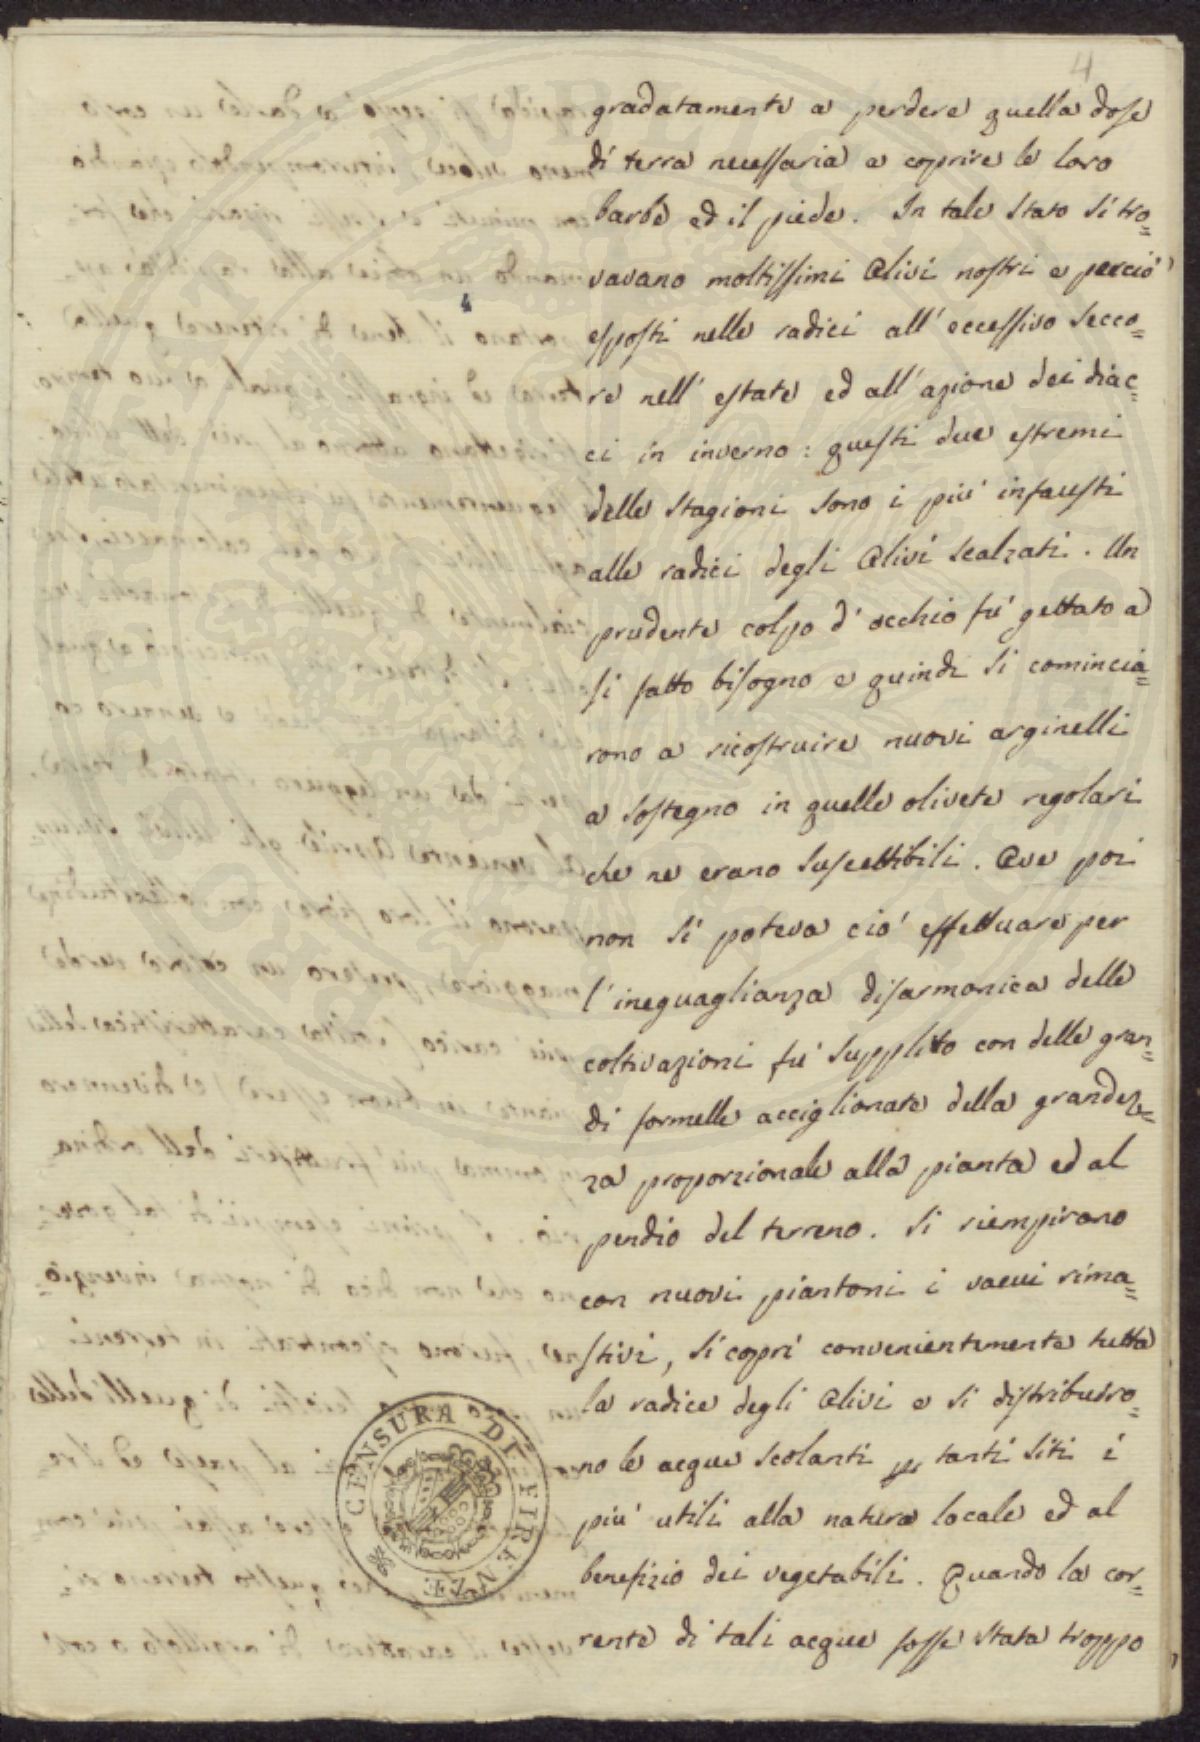 4
gradatamente a perdere quella dose
di terra necessaria a coprire le loro
barbe ed il piede. In tale stato si tro=
vavano moltissimi Olivi nostri e perciò
esposti nelle radici all' eccessivo secco=
re nell' estate ed all' azione dei diac=
ci in inverno: questi due estremi
delle stagioni sono i più infausti
alle radici degli Olivi scalzati. Un
prudente colpo d' occhio fù gettato a
si fatto bisogno e quindi si comincia=
rono a ricostruire nuovi arginelli
a sostegno in quelle olivete regolari
che ne erano suscettibili. Ove poi
non si poteva ciò effettuare per
l' ineguaglianza disarmonica delle
coltivazioni fù supplito con delle gran=
di formelle acciglionate della grandez=
za proporzionale alla pianta ed al
pendio del terreno. Si riempirono
con nuovi piantoni i vacui rima=
stivi, si coprì convenientemente tutta
la radice degli Olivi e si distribuiro=
no le acque scolanti per tanti siti i
più utili alla natura locale ed al
benefizio dei vegetabili. Quando la cor=
rente di tali acque fosse stata troppo
CENSURA DI FIRENZE